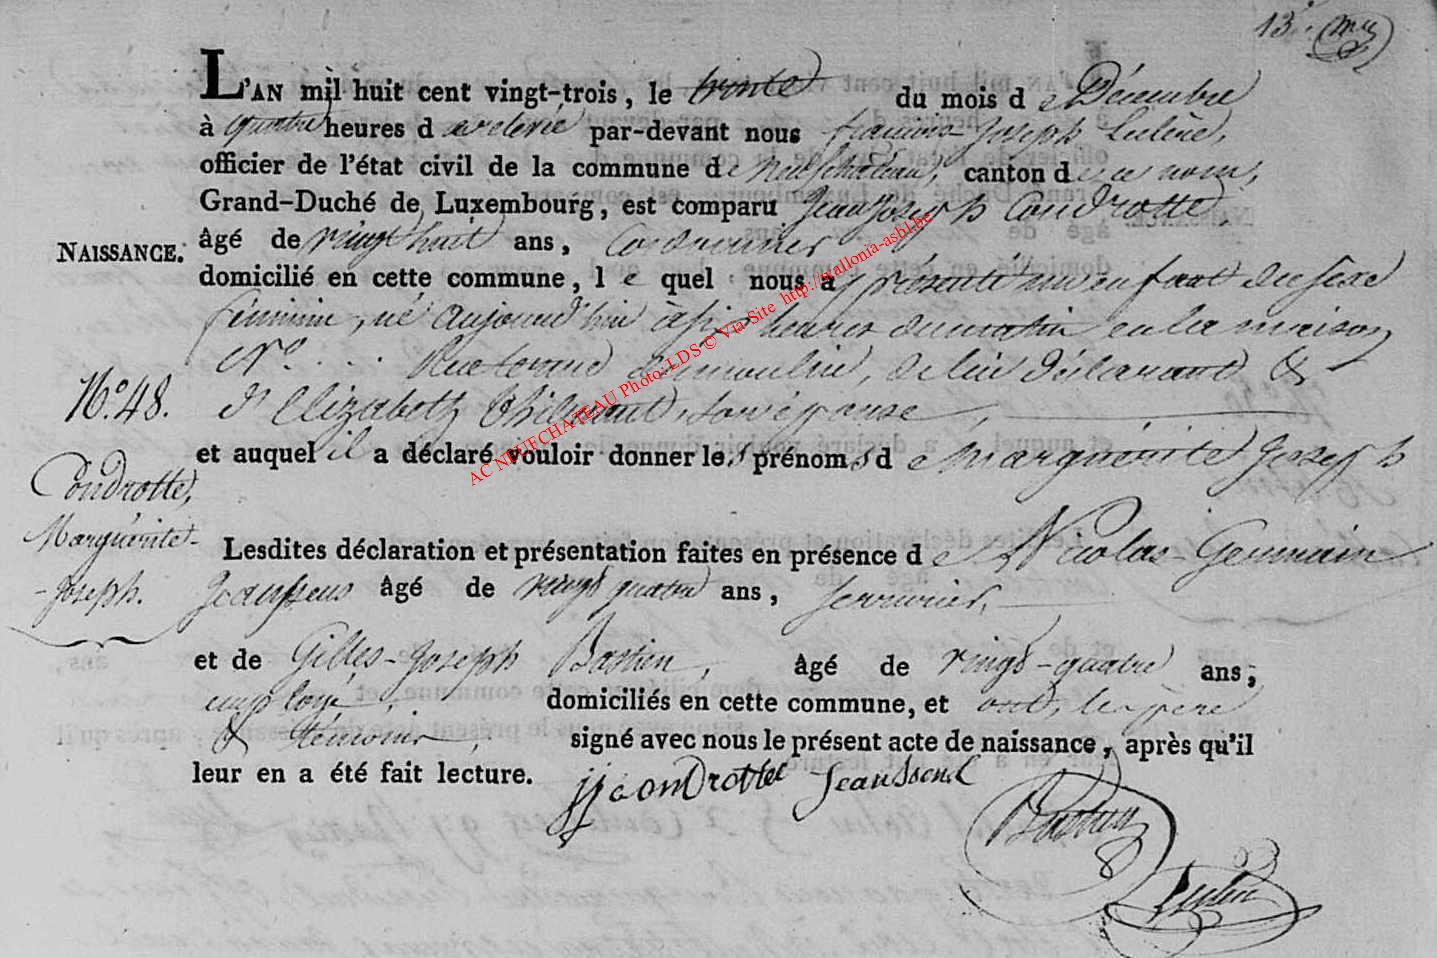 13.
L'AN mil huit cent vingt-trois, le trente du mois de Décembre
à quatre heures de relevée par-devant nous François Joseph
officier de l'état civil de la commune de Neufchateau, canton de ce nom,
Grand-Duché de Luxembourg, est comparu Jean Joseph Condrotte
NAISSANCE. âgé de vingt huit ans, Cordonnier
domicilié en cette commune, lequel nous a présenté un enfant du sexe
féminin, né aujourd'hui à six heures du matin en la maison
N° . . . Rue du moulin, de lui déclarant &
N.° 48. d'Elizabeth son épouse
et auquel il a déclaré vouloir donner les prénoms de Marguerite Joseph
Condrotte,
Marguérite-
-Joseph.
Lesdites déclaration et présentation faites en présence de Nicolas Germain
Jeanssens âgé de vingt quatre ans, serrurier,
et de Gilles-Joseph Bastien, âgé de vingt-quatre ans,
emploié, domiciliés en cette commune, et ont, le père
& témoins, signé avec nous le présent acte de naissance, après qu'il
leur en a été fait lecture.
jj condrotte Jeanssens
Bastien
AC NEUFCHATEAU Photo-LDS © Via-Site http://wallonia-asbl.be